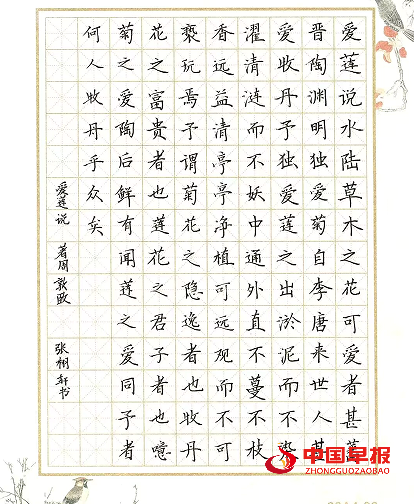 爱莲说水陆草木之花可爱者甚蕃
晋陶渊明独爱菊自李唐来世人甚
爱牡丹予独爱莲之出淤泥而不染
濯清涟而不妖中通外直不蔓不枝
香远益清亭亭净植可远观而不可
亵玩焉予谓菊花之隐逸者也牡丹
花之富贵者也莲花之君子者也噫
菊之爱陶后鲜有闻莲之爱同予者
何人牡丹乎众矣
爱莲说 著周敦 张栩轩书
中国早报
ZHONGGUOZAOBAO